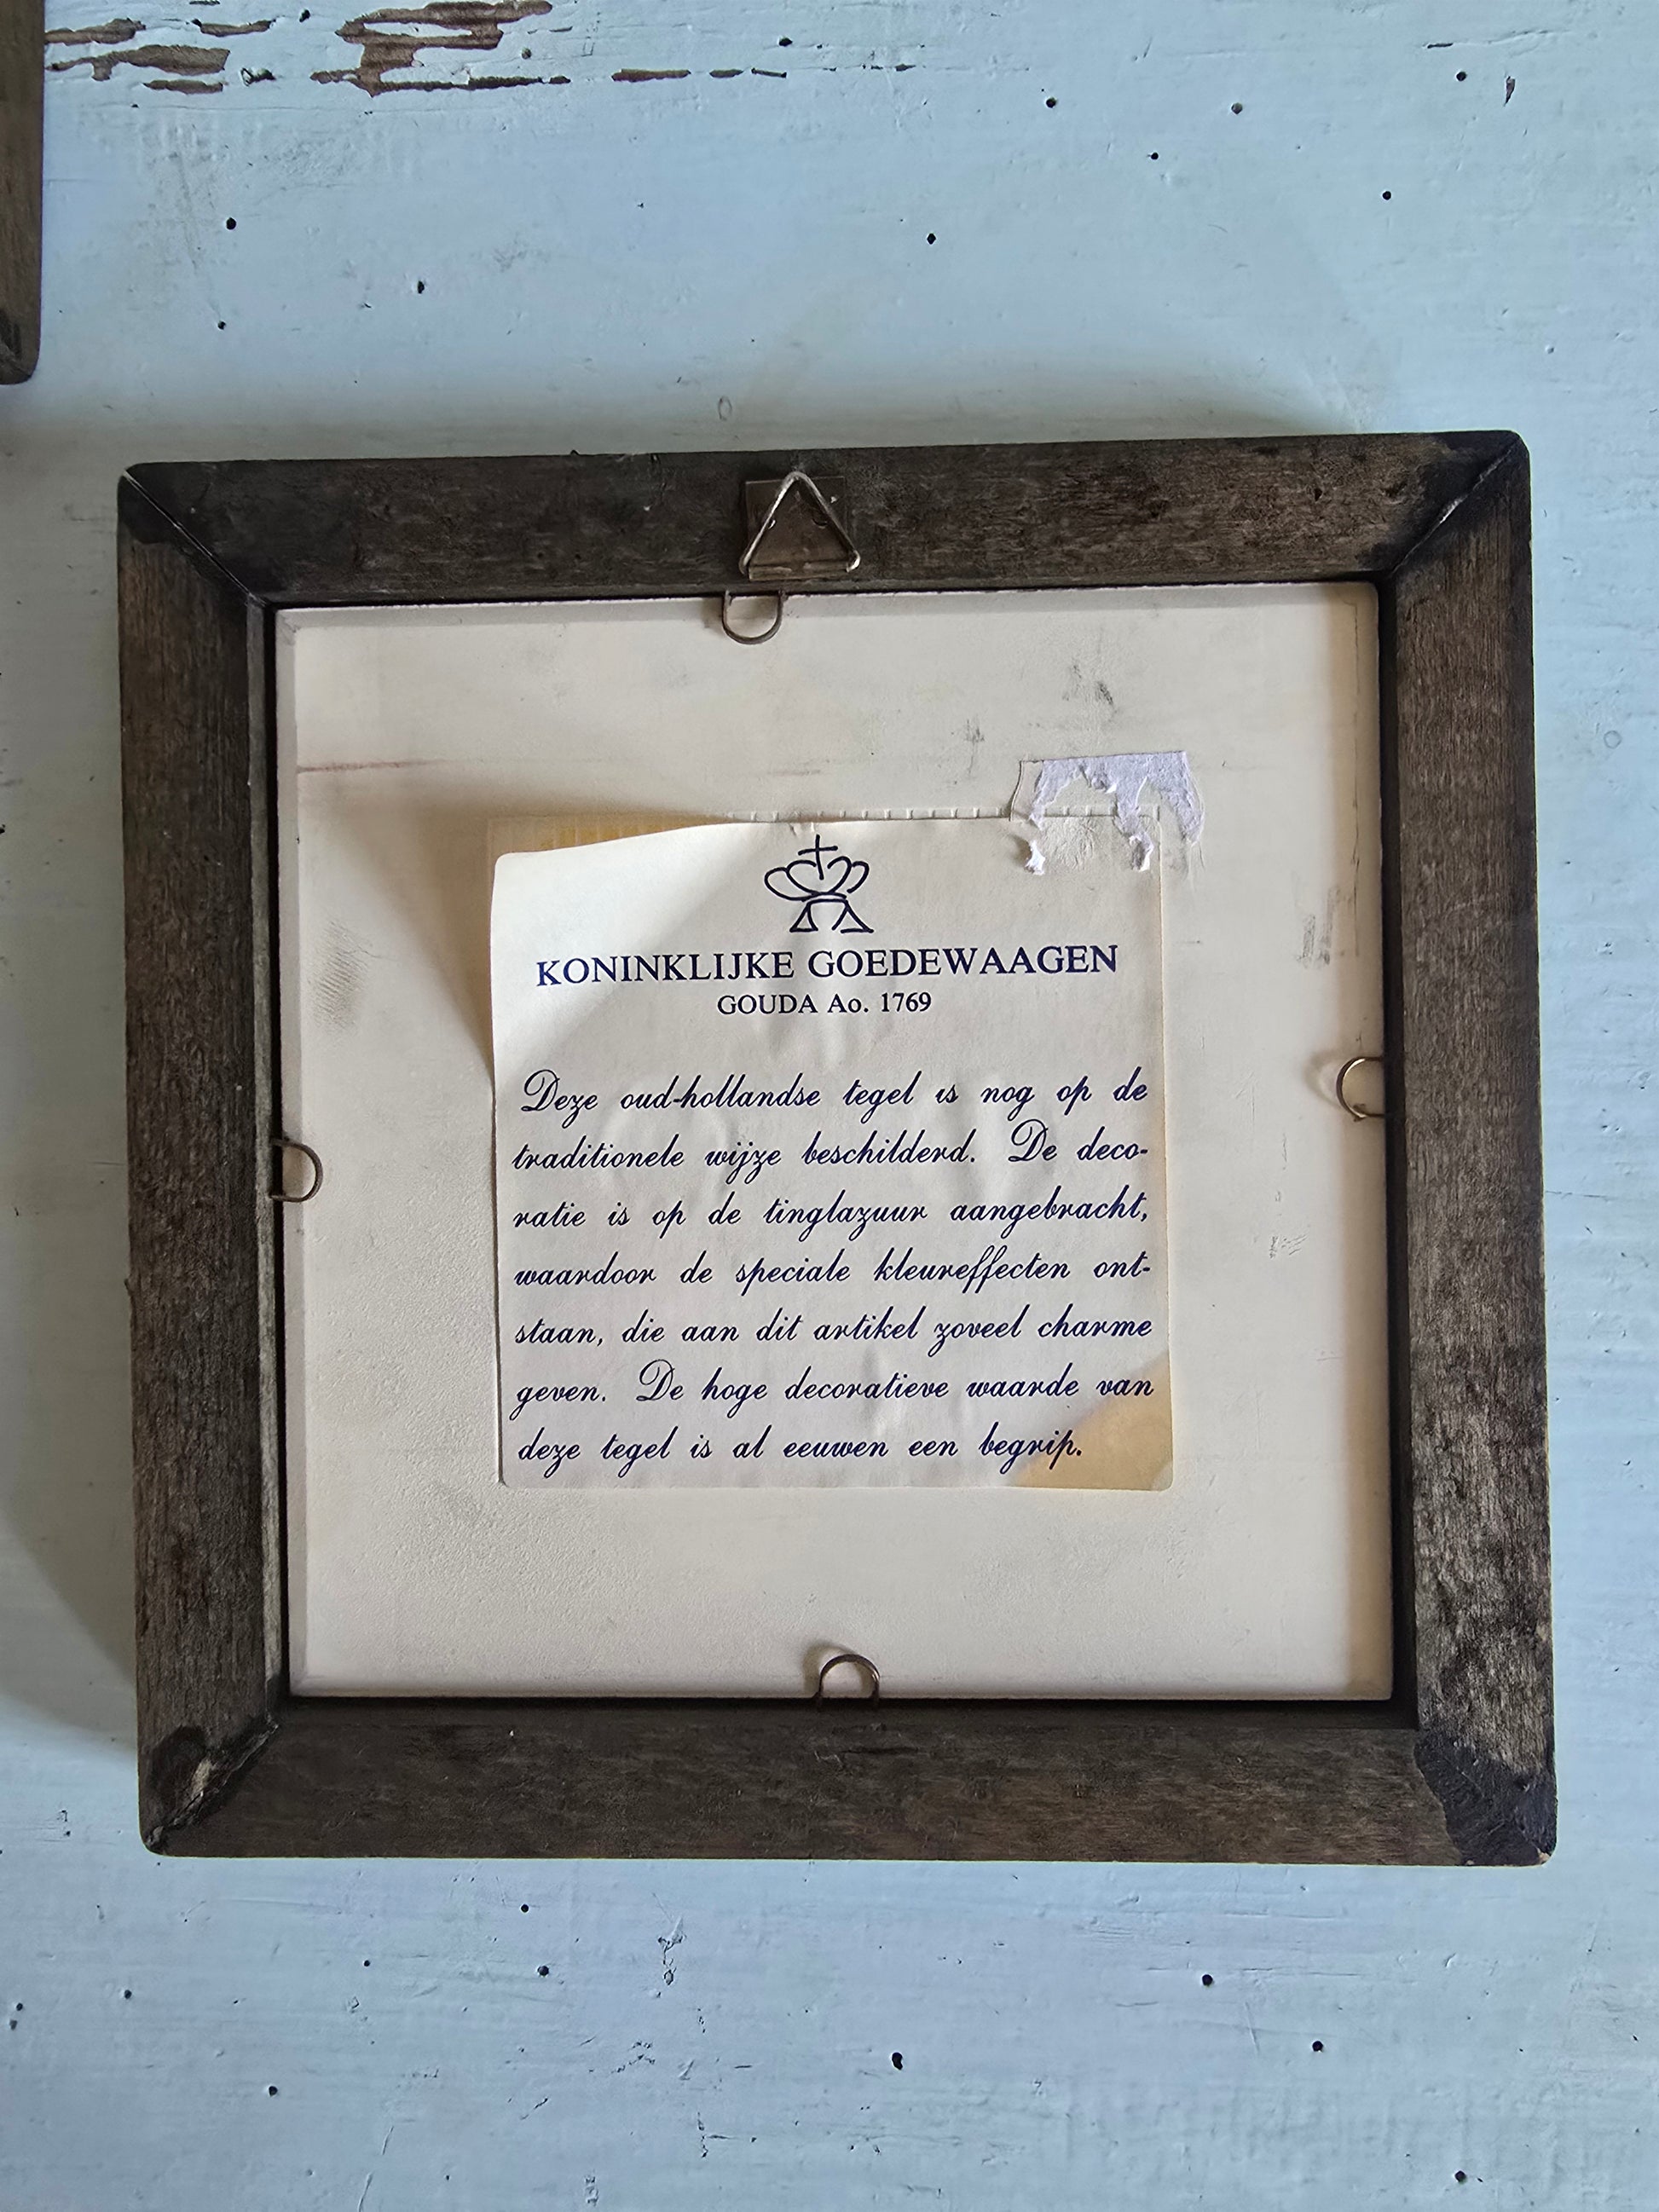 KONINKLIJKE GOEDEWAAGEN
GOUDA Ao. 1769
Deze oud-hollandse tegel is nog op de
traditionele wijze beschilderd. De deco-
ratie is op de tinglazuur aangebracht,
waardoor de speciale kleureffecten ont-
staan, die aan dit artikel zoveel charme
geven. De hoge decoratieve waarde van
deze tegel is al eeuwen een begrip.